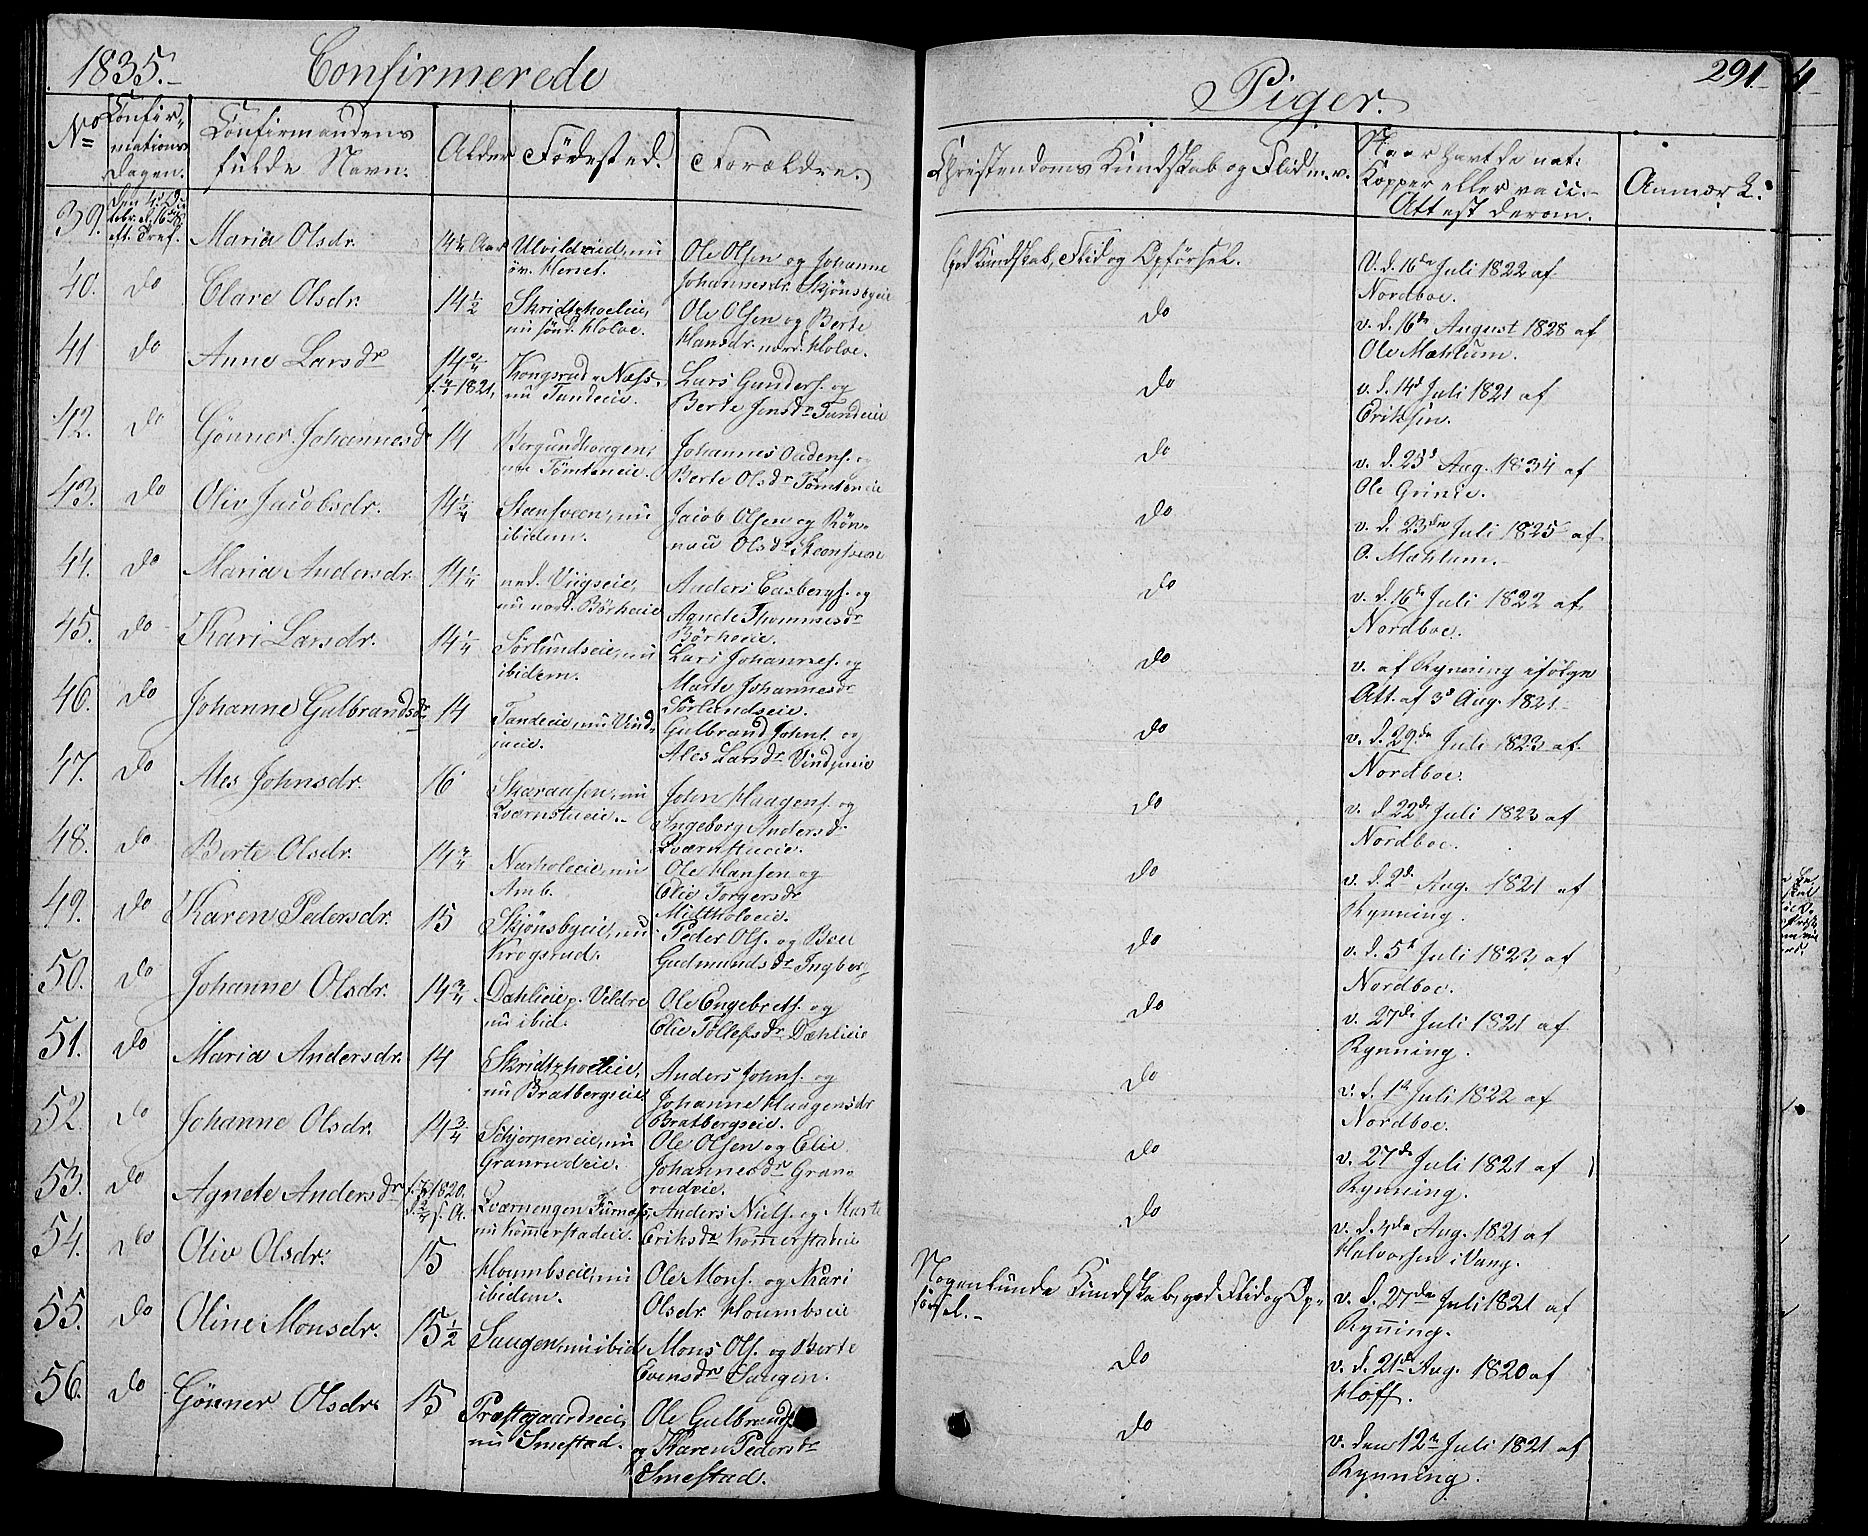 1835.
Confirmerede
Piger.
291.
No
Confirmations Dagen.
Confirmandens fulde Navn.
Alder
Fødested.
Forældre.
Christendoms Kundskab og Flid m.v.
Naar havt de nat: Kopper eller vacc. Attest derom.
Anmærk.
39. Maria Olsdr. 14 1/4 Aar nu øv. Hernet. Ole Olsen og Johanne Johannesdr. Skjønsbyeie God Kundskab, Flid og Opførsel. V. d. 16de Juli 1822 af Nordboe.
40. do Clare Olsdr. 14 1/2 Skridtshoeleie, nu sønd. Holoe. Ole Olsen og Berte Hansdr. nord. Holoe. do v. d. 16de August 1828 af Ole Mæhlum.
41 do Anne Larsdr 14 3/4 1821, Kongsrud Næss, nu Tandeeie. Lars Gunders. og Berte Jensdr Tandeeie do v. d. 14d Juli 1821 af Eriksen.
42. do Gønner Johannesd 14 nu Tømteneie. Johannes og Berte Olsdr Tømteneie do v. d. 25d Aug. 1834 af Ole Grinde.
43. do Oliv Jacobsdr. 14 1/4 Steensveen, nu ibidem. Jacob Olsen og Rønnau Olsdr Steensveen do v. d. 23den Juli 1825 af O. Mæhlum.
44. do Maria Andersdr. 14 1/4 ned. Viigseie, nu nord. Børkeeie Anders Casbergs. og Agnete Thommesdr Børkeeie. do v. d. 16de Juli 1822 af Nordboe.
45. do Kari Larsdr. 14 1/4 Sørlundseie, nu ibidem. Lars Johannes. og Marte Johannesdr Sørlundseie. do v. af Rynning ifølge Att. af 3d Aug. 1821
46. do Johanne Gulbrandsdr 14 Tandeeie, nu Vindjueie. Gulbrand Johns. og Ales Larsdr Vindjueie do v. d. 29de Juli 1823 af Nordboe.
47. do Ales Johnsdr. 16 Skaraasen, nu Qværnstueie. John Haagens. og Ingeborg Andersdr Qværnstueie. do v. d. 22de Juli 1823 af Nordboe.
48. do Berte Olsdr. 14 3/4 Narholoeie, nu Amb. Ole Hansen og Elie Torgersdr Midtholoeie. do v. d. 2d Aug. 1821 af Rynning.
49. do Karen Pedersdr. 15 Skjønsbyeie, nu Krogsrud. Peder Ols. og Boel Gudmundsdr Ingber do v. d. 5te Juli 1822 af Nordboe.
50. do Johanne Olsdr. 14 3/4 Dæhlieie p. Veldre nu ibid. Ole Engebrets. og Elie Tollefsdr Dæhlieie do v. 27de Juli 1821 af Rynning.
51. do Maria Andersdr. 14 Skridtshoeleie, nu Bratbergseie Anders Johns. og Johanne Haagensdr Bratbergseie. do v. d. 1te Juli 1822 af Nordboe.
52. do Johanne Olsdr. 14 3/4 Schjerpeneie, nu Granrudeie. Ole Olsen og Elie Johannesdr Granrudeie. do v. 27de Juli 1821 af Rynning.
53. do Agnete Andersdr 1820. Qværnengen Furnæs, nu Kommerstadeie. Anders Niels. og Marte Eriksdr Kommerstadeie do v. d. Aug. 1821 af Halvorsen i Vang.
54. do Oliv Olsdr. 15 Houmbseie, nu ibidem. Ole Mons. og Kari Olsdr. Houmbseie Nogenlunde Kundskab, god Flid og Opførsel. v. d. 27de Juli 1821 af Rynning.
55. do Oline Monsdr. 15 1/2 Saugen, nu ibid Mons Ols. og Berte Evensdr Saugen. do v. d. 21de Aug. 1820 af Hoff.
56. do Gønner Olsdr. 15 Præstegaardseie, nu Smestad. Ole Gulbrands og Karen Pedersdr Smestad. do v. den 12te Juli 1821 af Rynning.